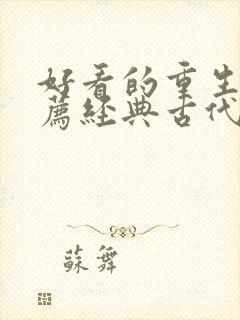 好看的重生
薦經典古代
蘇舞